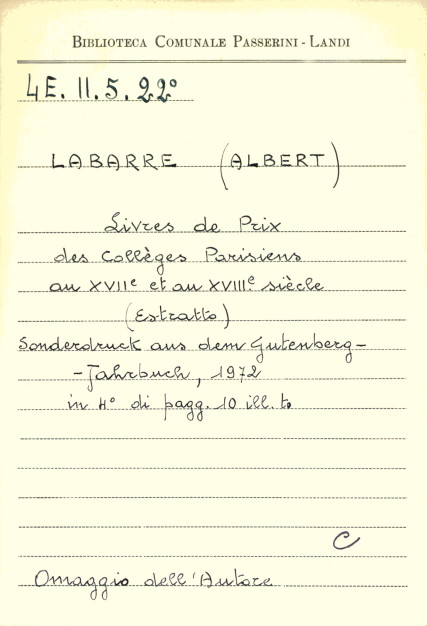 BIBLIOTECA COMUNALE PASSERINI - LANDI
4E. II. 5. 22º
LABARRE (ALBERT)
Livres de Prix
des Collèges Parisiens
au XVIIe et au XVIIIe siècle
(Estratto)
Sonderdruck aus dem Gutenberg-
-Jahrbuch, 1972
in 4º di pagg. 10 ill. to
C
Omaggio dell'Autore